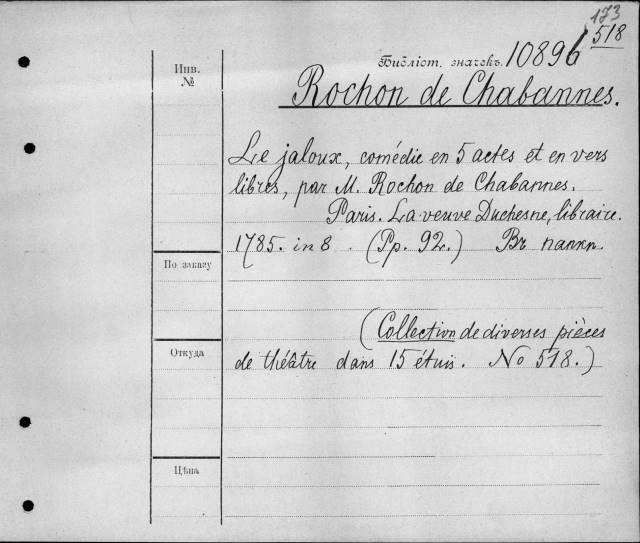 173
518
Библіот. значекъ. 10896
Инв.
№
Rochon de Chabannes.
Le jaloux, comédie en 5 actes et en vers
libres, par M. Rochon de Chabannes.
Paris. La veuve Duchesne, libraire.
1785. in 8 (Pp. 92.) Вг папкѣ.
По заказу
(Collection de diverses pièces
Откуда
de théâtre dans 15 étuis. No 518.)
Цѣна